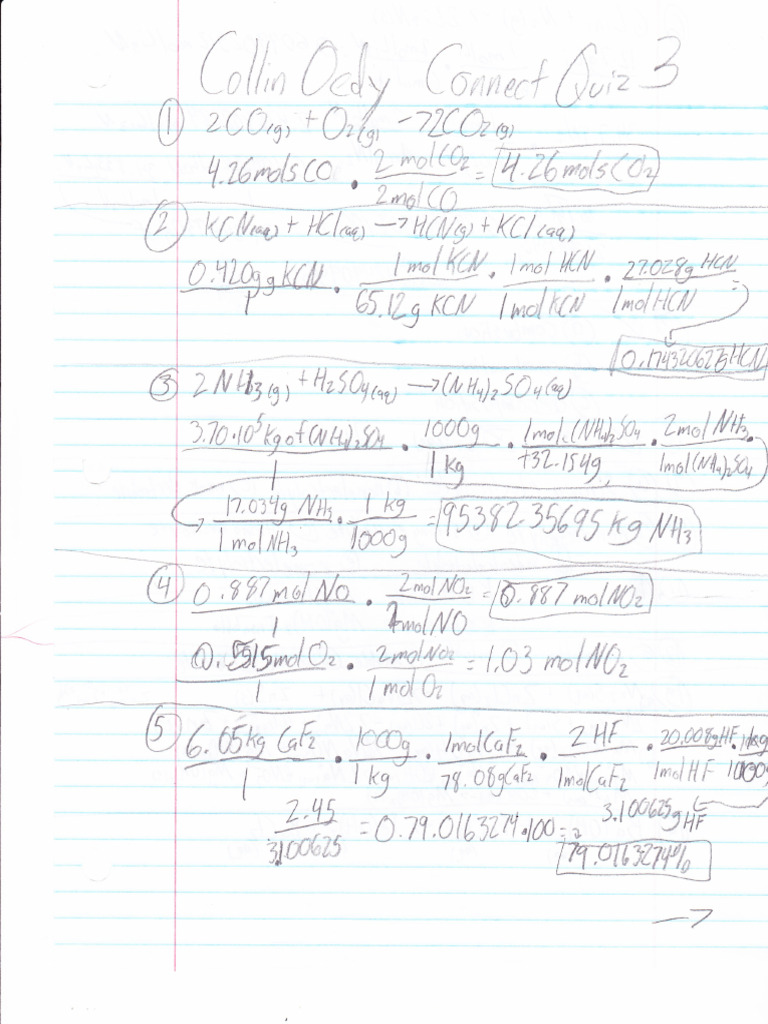 Collin Ocdy Connect Quiz 3
① 2CO(g) + O2(g) → 2CO2(g)
4.26 mols CO • 2 mol CO2 / 2 mol CO = 4.26 mols CO2
② KCN(aq) + HCl(aq) → HCN(g) + KCl(aq)
0.420g g KCN / 1 • 1 mol KCN / 65.12 g KCN • 1 mol HCN / 1 mol KCN • 27.028g HCN / 1 mol HCN =
HCN
③ 2NH3(g) + H2SO4(aq) → (NH4)2SO4(aq)
3.70•10^5 kg of (NH4)2SO4 / 1 • 1000g / 1 kg • 1 mol (NH4)2SO4 / 132.154g • 2 mol NH3 / 1 mol (NH4)2SO4 •
17.034g NH3 / 1 mol NH3 • 1 kg / 1000g = 95382.35695 kg NH3
④ 0.887 mol NO / 1 • 2 mol NO2 / 2 mol NO = 0.887 mol NO2
0.515 mol O2 / 1 • 2 mol NO2 / 1 mol O2 = 1.03 mol NO2
⑤ 6.05 kg CaF2 / 1 • 1000g / 1 kg • 1 mol CaF2 / 78.08g CaF2 • 2 HF / 1 mol CaF2 • 20.008g HF / 1 mol HF • 1 kg / 1000g
3.100625g HF
2.45 / 3.100625 = 0.79.0163274 • 100 =
79.0163274%
→